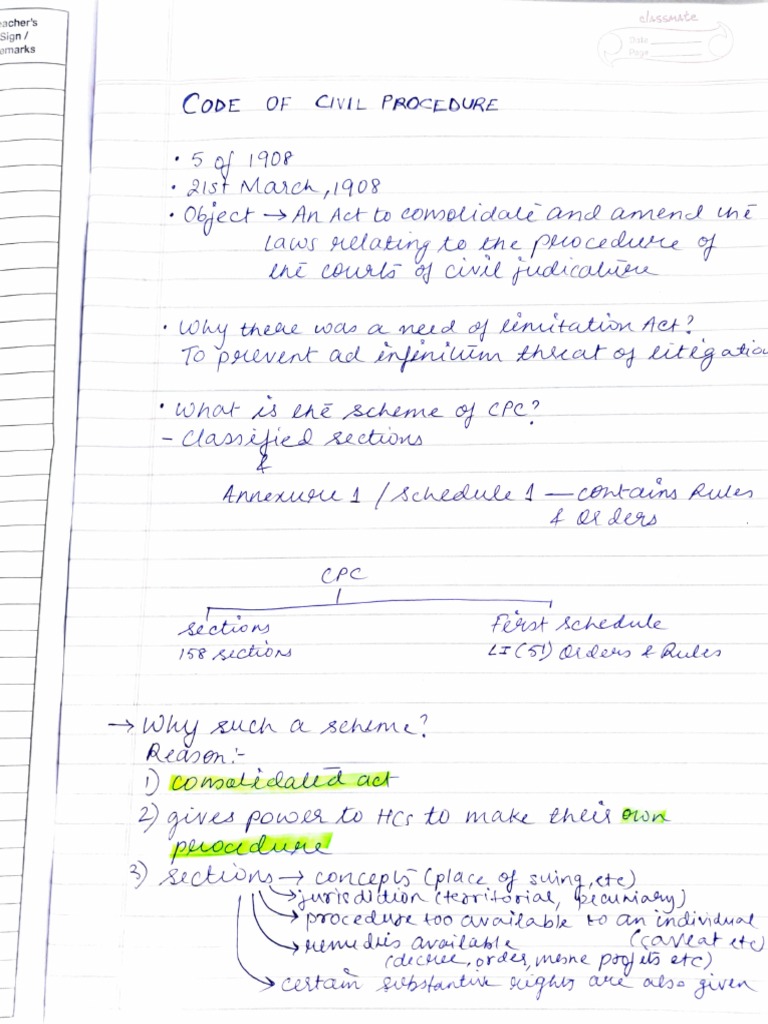 eacher's
Sign /
emarks
classmate
Date
Page
CODE OF CIVIL PROCEDURE
• 5 of 1908
• 21st March, 1908
• Object → An Act to consolidate and amend the
laws relating to the procedure of
the courts of civil judicature
• Why there was a need of limitation Act?
To prevent ad infinitum threat of litigation
• What is the scheme of CPC?
- Classified sections
&
Annexure 1 / Schedule 1 — contains Rules
& Orders
CPC
sections
First Schedule
158 sections
LI (51) Orders & Rules
→ Why such a scheme?
Reason:-
1) consolidated act
2) gives power to HCs to make their own
procedure
3) sections → concepts (place of suing, etc)
→ jurisdiction (territorial, pecuniary)
→ procedure too available to an individual
(caveat etc)
→ remedies available
(decree, order, mesne profits etc)
→ certain substantive rights are also given